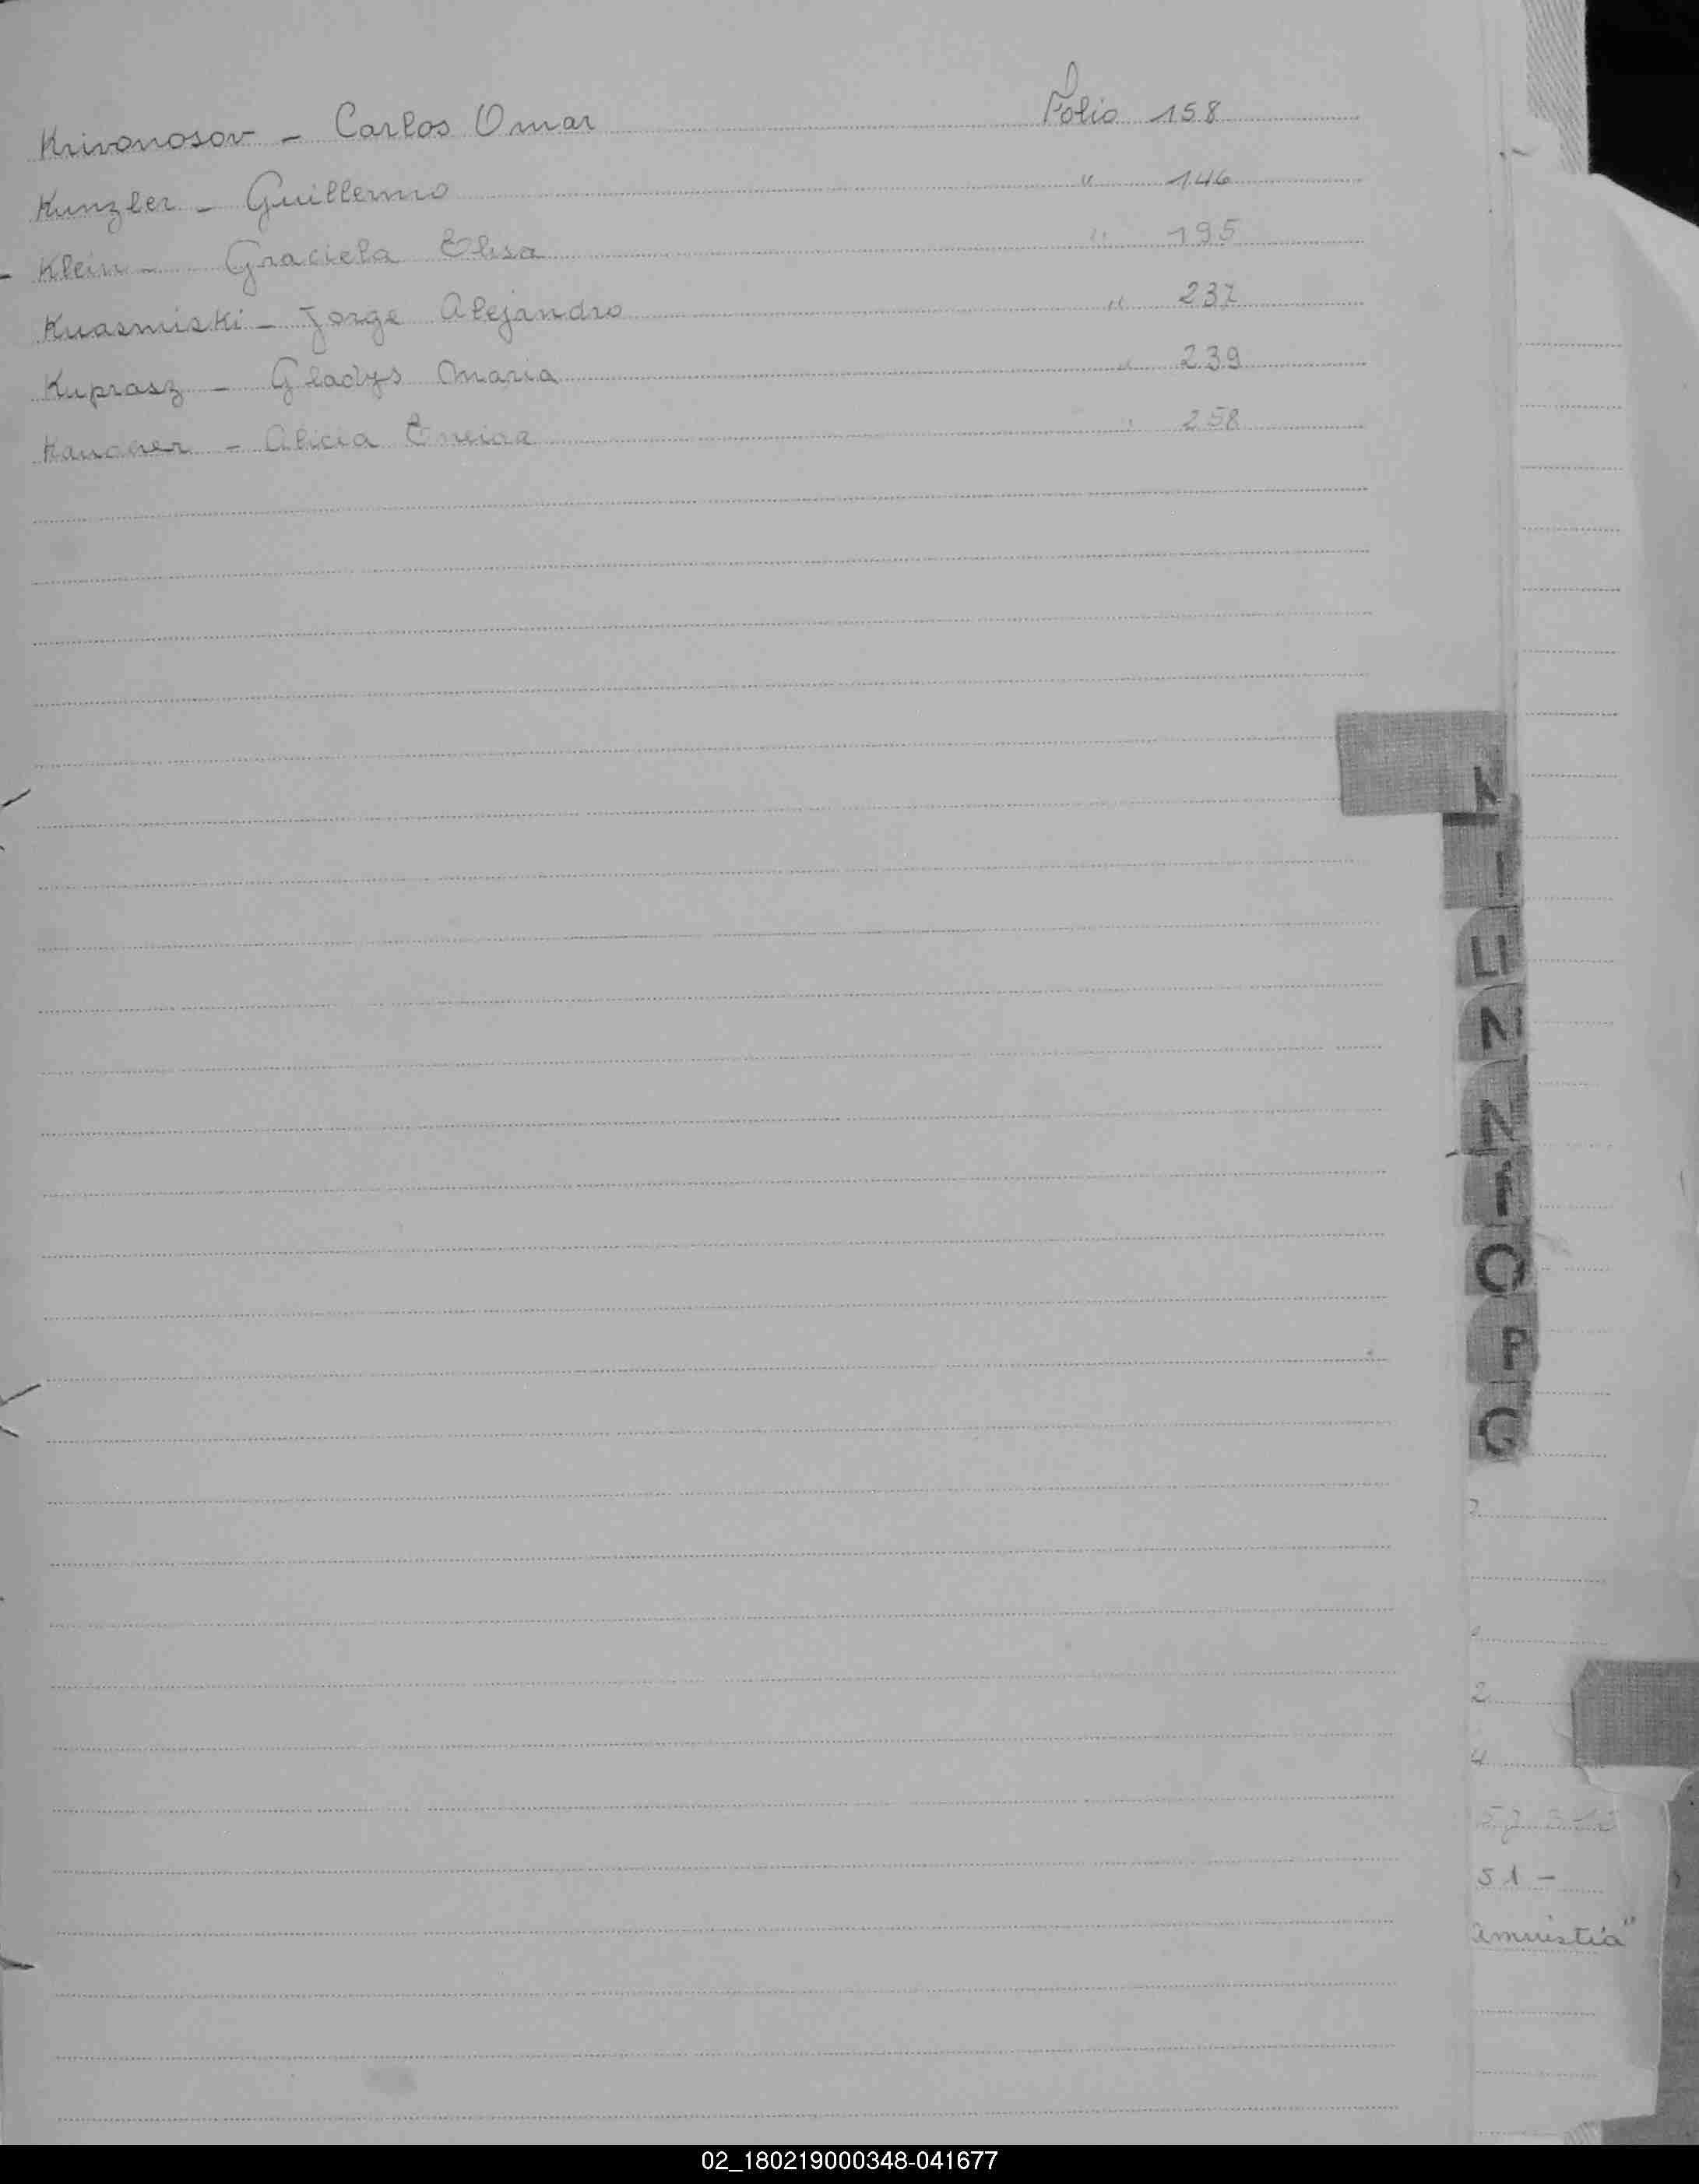 Krivonosov - Carlos Omar Folio 158
Kunzler - Guillermo " 146
- Klein - Graciela Elisa " 195
Kuasmiski - Jorge Alejandro " 237
Kuprasz - Gladys Maria " 239
- Alicia " 258
N
N
O
P
2
4
51 -
amnistia"
02_180219000348-041677